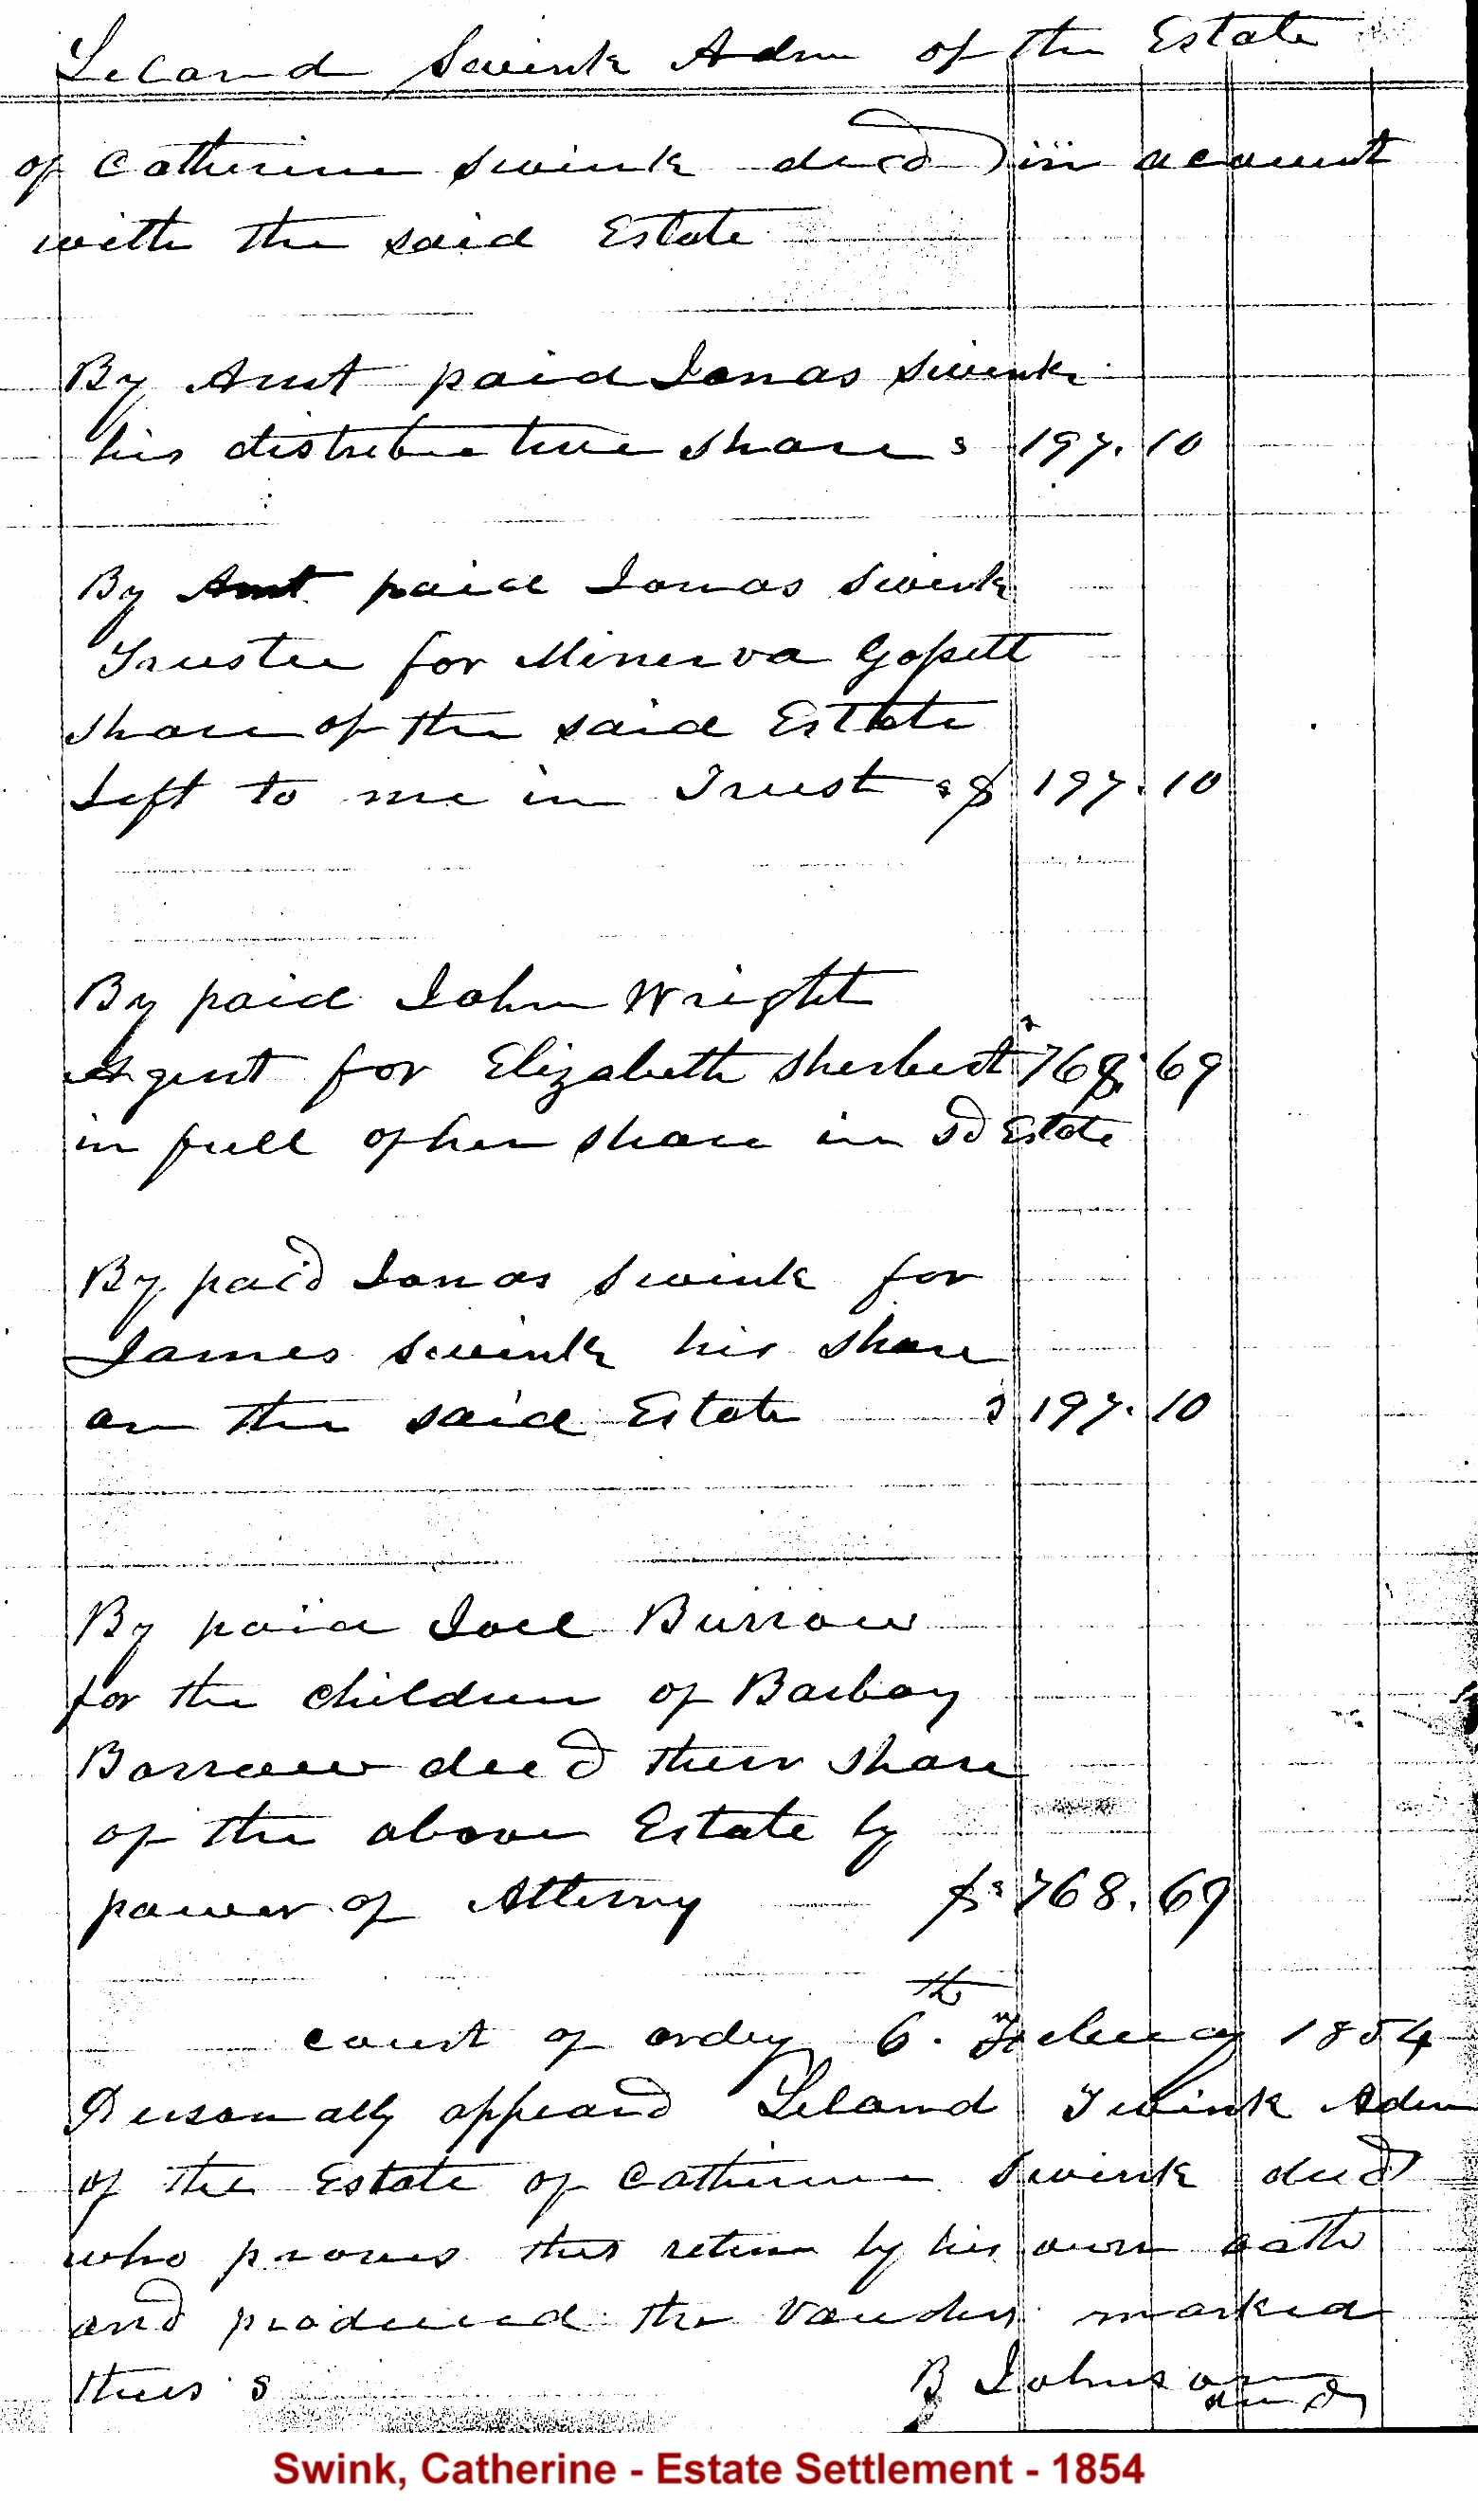 Leland Swink Adm of the Estate
of Catherine Swink decd in account
with the said Estate
By Amt paid Jonas Swink
his distributive share s 197.10
By Amt paid Jonas Swink
Trustee for Minerva Gossett
share of the said Estate
Left to me in Trust s $ 197.10
By paid John Wright
Agent for Elizabeth Sherbert 768.69
in full of her share in sd Estate
By paid Jonas Swink for
James Swink his share
on the said Estate s 197.10
By paid Joel Burrow
for the children of Barbay
Borrow decd their share
of the above Estate by
power of Atterny $s 768.69
court of ordy 6th Februay 1854
Personally appeard Leland Swink Adm
of the Estate of Catherine Swink decd
who proves this return by his own oath
and produced the Vouchers marked
thus s B Johnson